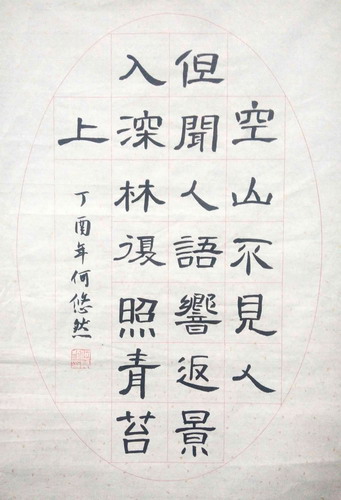 空山不見人
但聞人語響返景
入深林復照青苔
上
丁酉年何悠然